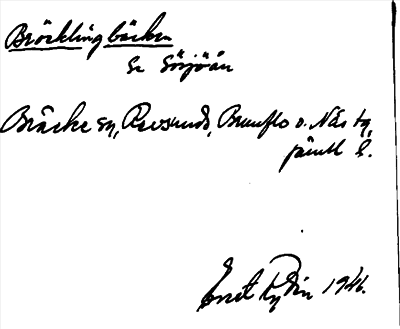 Bröcklingbäcken
Se Sörjöån
Bräcke sn, Revsunds, Brunflo o. Näs tg,
Jämtl l.
Ernst Rydin 1946.